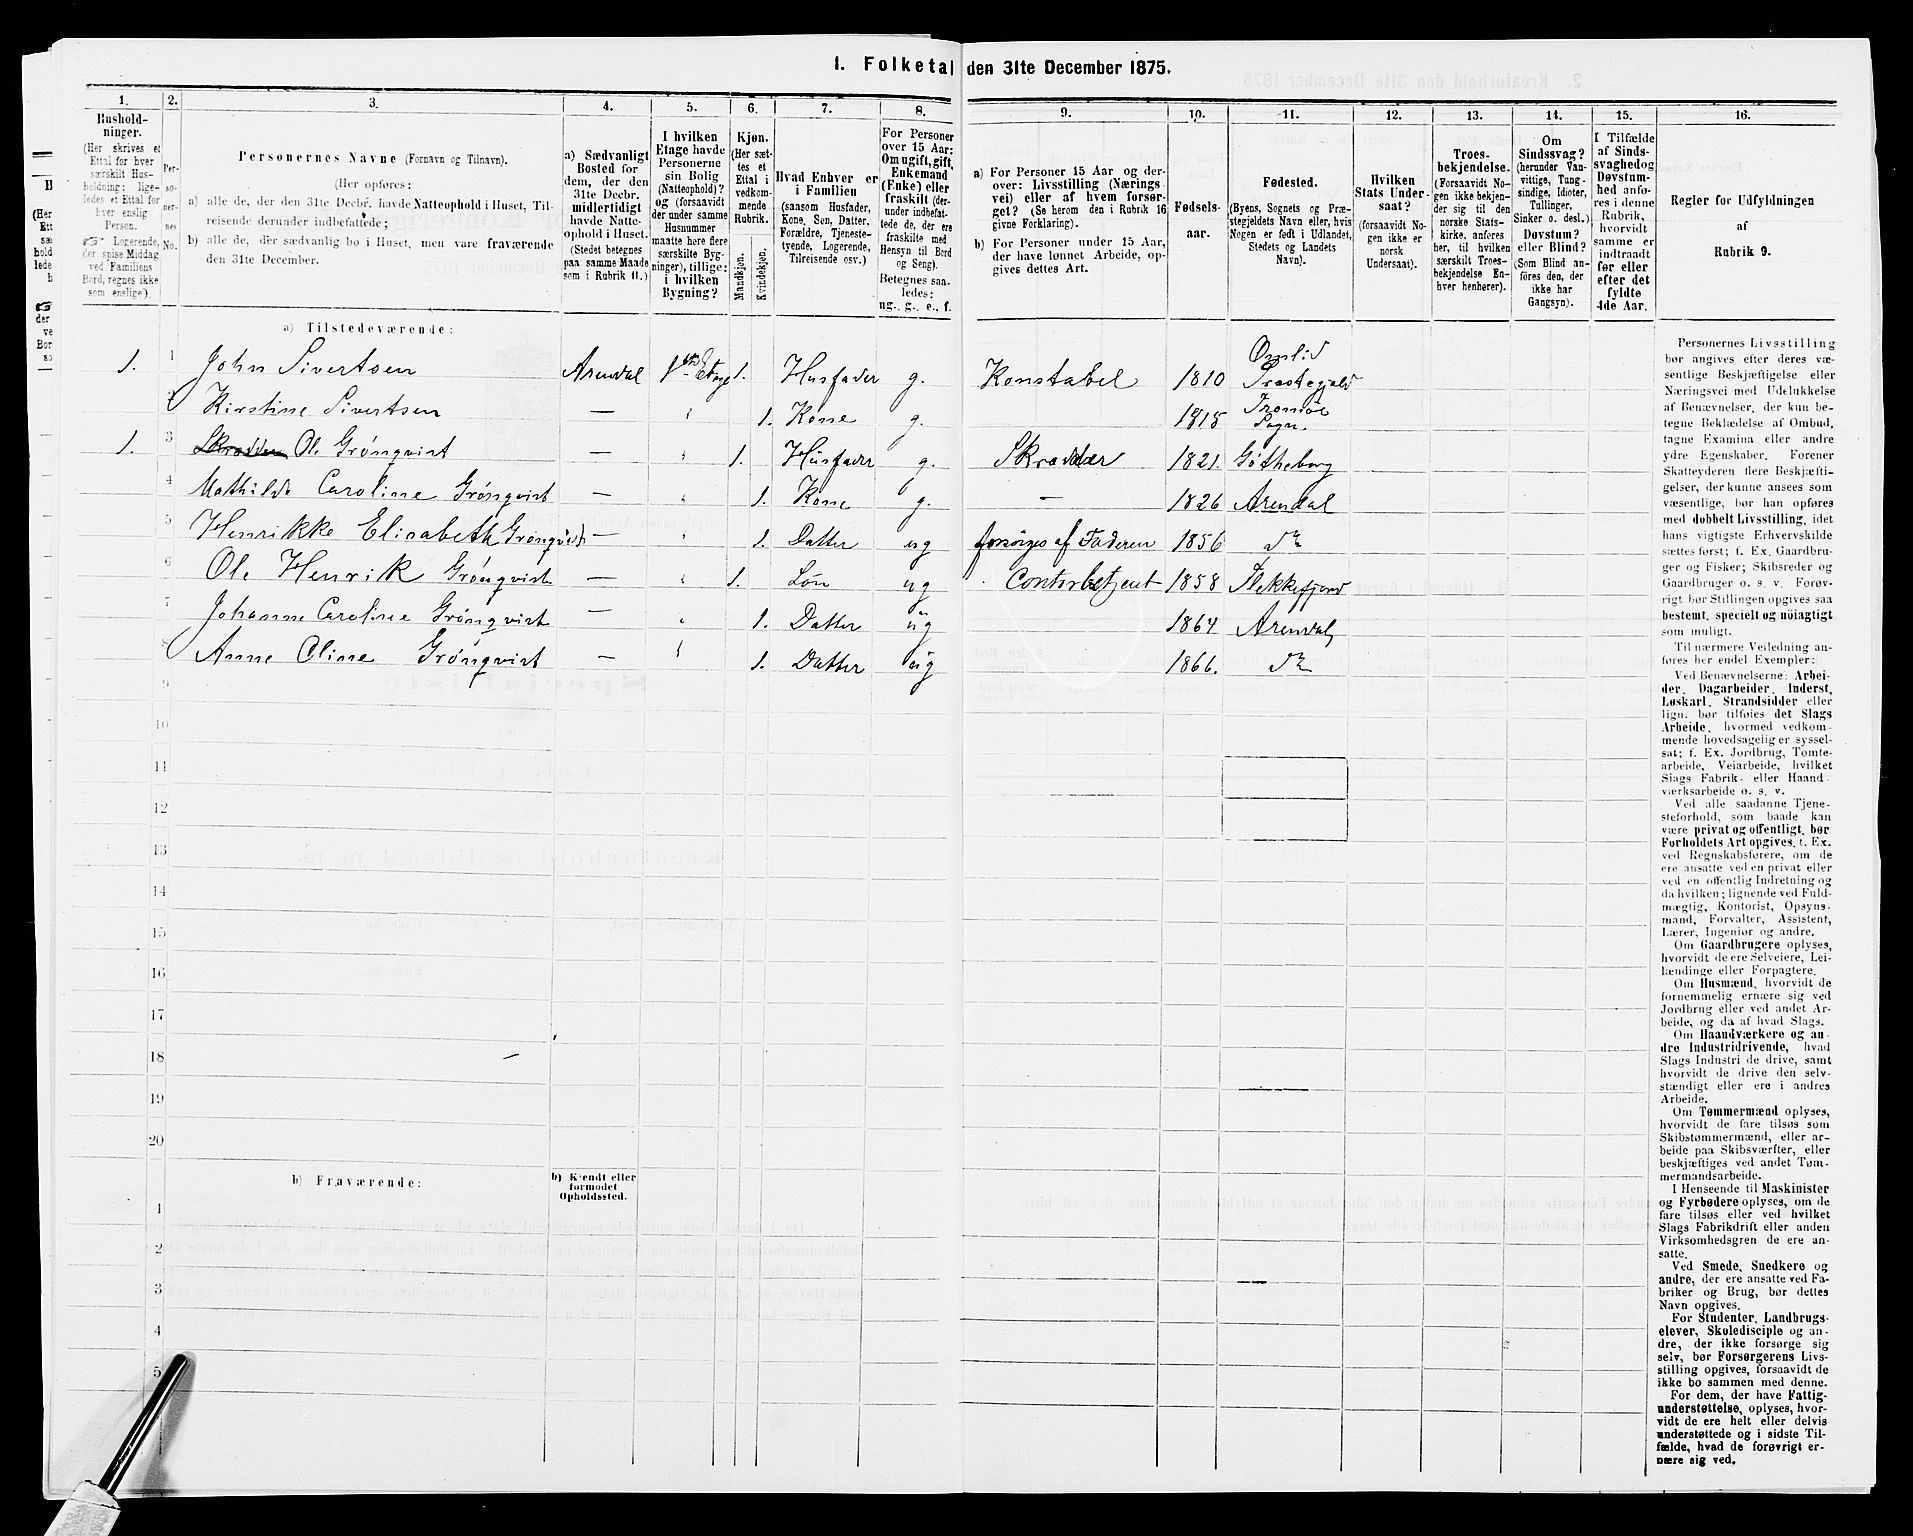 1. Folketal den 31te December 1875.
1. 2. 3. 4. 5. 6. 7. 8. 9. 10. 11. 12. 13. 14. 15. 16.
Hushold-
ninger.
(Her skrives et
Ettal for hver
særskilt Hus-
holdning; lige-
ledes et Ettal for
hver enslig
Person.
☞ Logerende,
der spise Middag
ved Familiens
Bord, regnes ikke
som enslige).
Per-
so-
ner-
nes
No.
Personernes Navne (Fornavn og Tilnavn).
(Her opføres:
a) alle de, der den 31te Decbr. havde Natteophold i Huset, Til-
reisende derunder indbefattede;
b) alle de, der sædvanlig bo i Huset, men vare fraværende
den 31te December.
a) Sædvanligt
Bosted for
dem, der den
31te Decbr.
midlertidigt
havde Natte-
ophold i Huset.
(Stedet betegnes
paa samme Maade
som i Rubrik 11.)
I hvilken
Etage havde
Personerne
sin Bolig
(Natteophold)?
og (forsaavidt
der under samme
Husnummer
maatte høre flere
særskilte Byg-
ninger), tillige:
i hvilken
Bygning?
Kjøn.
(Her sæt-
tes et
Ettal i
vedkom-
mende
Rubrik.
Mandkjøn.
Kvindekjøn.
Hvad Enhver er
i Familien
(saasom Husfader,
Kone, Søn, Datter,
Forældre, Tjeneste-
tyende, Logerende,
Tilreisende osv.)
For Personer
over 15 Aar:
Om ugift, gift,
Enkemand
(Enke) eller
fraskilt (der-
under indbefat-
tede de, der ere
fraskilte med
Hensyn til Bord
og Seng).
Betegnes saa-
ledes:
ug., g., e., f.
a) For Personer 15 Aar og der-
over: Livsstilling (Nærings-
vei) eller af hvem forsør-
get? (Se herom den i Rubrik 16
givne Forklaring).
b) For Personer under 15 Aar,
der have lønnet Arbeide, op-
gives dettes Art.
Fødsels-
aar.
Fødested.
(Byens, Sognets og Præ-
stegjeldets Navn eller, hvis
Nogen er født i Udlandet,
Stedets og Landets
Navn).
Hvilken
Stats Under-
saat?
(forsaavidt No-
gen ikke er
norsk
Undersaat).
Troes-
bekjendelse.
(Forsaavidt No-
gen ikke bekjen-
der sig til den
norske Stats-
kirke, anføres
her, til hvilken
særskilt Troes-
bekjendelse En-
hver henhører).
Om
Sindssvag?
(herunder Van-
vittige, Tung-
sindige, Idioter,
Tullinger,
Sinker o. desl.)
Døvstum?
eller Blind?
(Som Blind an-
føres den, der
ikke har
Gangsyn).
I Tilfælde
af Sinds-
svaghed og
Døvstum-
hed anfø-
res i denne
Rubrik,
hvorvidt
samme er
indtraadt
før eller
efter det
fyldte
4de Aar.
Regler for Udfyldningen
af
Rubrik 9.
a) Tilstedeværende:
1. 1 John Sivertsen Arendal 1ste Etage 1. Husfader g. Konstabel 1810 Omlid Præstegjeld
2 Kirstine Sivertsen — " 1. Kone g. 1815 Tromøe Sogn.
1. 3 Ole Grönqvist — " 1. Husfader g. Skrædder 1821. Götheborg
4 Mathilde Caroline Grönqvist — " 1. Kone g. — 1826 Arendal
5 Henrikke Elisabeth Grönqvist — 1. Datter ug forsörges af Faderen 1856 do
6 Ole Henrik Grönqvist — " 1. Sön ug Contorbetjent 1858 Flekkefjord
7 Johanne Caroline Grönqvist — " 1. Datter ug 1864 Arendal,
8 Anne Oline Grönqvist — " 1. Datter ug 1866. do
9
10
11
12
13
14
15
16
17
18
19
20
b) Fraværende: b) Kjendt eller
formodet
Opholdssted.
1
2
3
4
5
Personernes Livsstilling
bør angives efter deres væ-
sentlige Beskjæftigelse eller
Næringsvei med Udelukkelse
af Benævnelser, der kun be-
tegne Beklædelse af Ombud,
tagne Examina eller andre
ydre Egenskaber. Forener
Skatteyderen flere Beskjæfti-
gelser, der kunne ansees som
væsentlige, bør han opføres
med dobbelt Livsstilling, idet
hans vigtigste Erhvervskilde
sættes først; f. Ex. Gaardbru-
ger og Fisker; Skibsreder og
Gaardbruger o. s. v. Forøv-
rigt bør Stillingen opgives saa
bestemt, specielt og nøiagtigt
som muligt.
Til nærmere Veiledning an-
føres her endel Exempler:
Ved Benævnelserne: Arbei-
der, Dagarbeider, Inderst,
Løskarl, Strandsidder eller
lign. bør tilføies det Slags
Arbeide, hvormed vedkom-
mende hovedsagelig er syssel-
sat; f. Ex. Jordbrug, Tomte-
arbeide, Veiarbeide, hvilket
Slags Fabrik- eller Haand-
værksarbeide o. s. v.
Ved alle saadanne Tjene-
steforhold, som baade kan
være privat og offentligt, bør
Forholdets Art opgives, f. Ex.
ved Regnskabsførere, om de
ere ansatte ved en privat eller
ved en offentlig Indretning og
da hvilken; lignende ved Fuld-
mægtig, Kontorist, Opsyns-
mand, Forvalter, Assistent,
Lærer, Ingeniør og andre.
Om Gaardbrugere oplyses,
hvorvidt de ere Selveiere, Lei-
lændinge eller Forpagtere.
Om Husmænd, hvorvidt de
fornemmelig ernære sig ved
Jordbrug eller ved andet Ar-
beide, og da af hvad Slags.
Om Haandværkere og an-
dre Industridrivende, hvad
Slags Industri de drive, samt
hvorvidt de drive den selv-
stændigt eller ere i andres
Arbeide.
Om Tømmermænd oplyses,
hvorvidt de fare tilsøs som
Skibstømmermænd, eller ar-
beide paa Skibsværfter, eller
beskjæftiges ved andet Tøm-
mermandsarbeide.
I Henseende til Maskinister
og Fyrbødere oplyses, om de
fare tilsøs eller ved hvilket
Slags Fabrikdrift eller anden
Virksomhedsgren de ere an-
satte.
Ved Smede, Snedkere og
andre, der ere ansatte ved Fa-
briker og Brug, bør dettes
Navn opgives.
For Studenter, Landbrugs-
elever, Skoledisciple og an-
dre, der ikke forsørge sig
selv, bør Forsørgerens Livs-
stilling opgives, forsaavidt de
ikke bo sammen med denne.
For dem, der have Fattig-
understøttelse, oplyses, hvor-
vidt de ere helt eller delvis
understøttede og i sidste Til-
fælde, hvad de forøvrigt er-
nære sig ved.